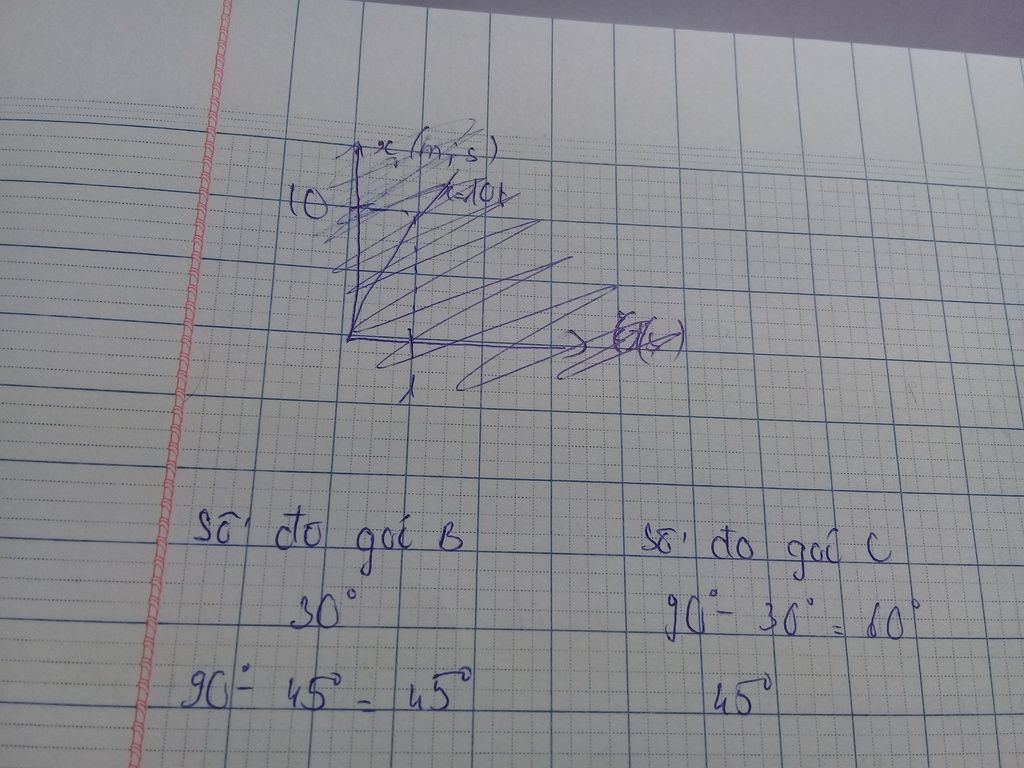 x (m, s)
10
1
Số đo goć B
Số đo goć C
30°
90° - 30° = 60°
90° - 45° = 45°
45°